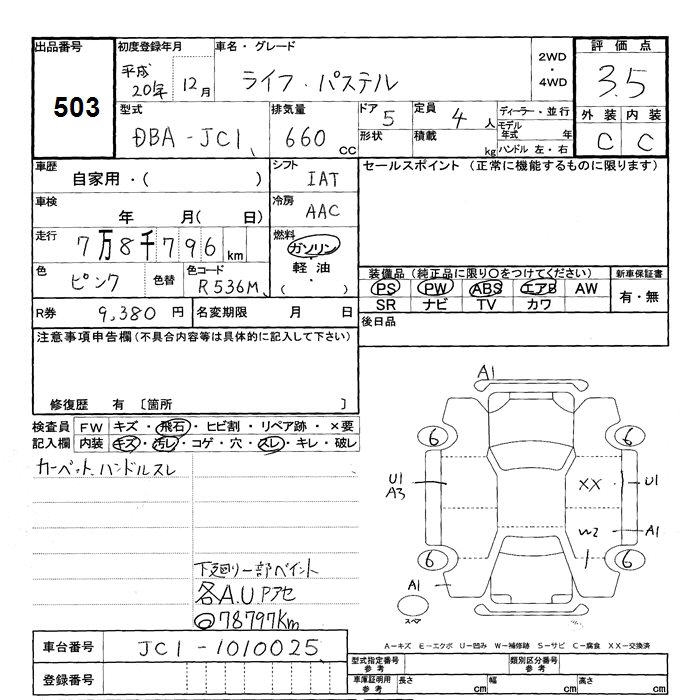 出品番号 初度登録年月 車名・グレード 2WD・4WD 評価点
503 平成20年 12月 ライフ・パステル 3.5
型式 排気量 ドア 5 定員 4人 ディーラー・並行 外装 内装
DBA-JC1 660cc 形状 積載 kg モデル年式 年 C C
ハンドル 左・右
車歴 自家用・( ) シフト IAT セールスポイント (正常に機能するものに限ります)
車検 年 月( 日) 冷房 AAC
走行 7万8千796km 燃料 ガソリン・軽油・( )
色 ピンク 色替 色コード R536M 装備品(純正品に限り○をつけてください) 新車保証書
PS PW ABS エアB AW 有・無
SR ナビ TV カワ
R券 9,380円 名変期限 月 日 後日品
注意事項申告欄(不具合内容等は具体的に記入して下さい)
修復歴 有 〔箇所 〕
検査員記入欄 FW キズ・飛石・ヒビ割・リペア跡・×要
内装 キズ・汚レ・コゲ・穴・スレ・キレ・破レ
カーペット、ハンドルスレ
下廻り一部ペイント
各A.U Pアセ
◎78797Km
A1
6 6
U1 A3 XX U1
W2 A1
6 6
A1
スペア
A-キズ E-エクボ U-凹み W-補修跡 S-サビ C-腐食 XX-交換済
車台番号 JC1-1010025
型式指定番号 参考 類別区分番号 参考
登録番号 車庫証明用 参考 長さ cm 幅 cm 高さ cm